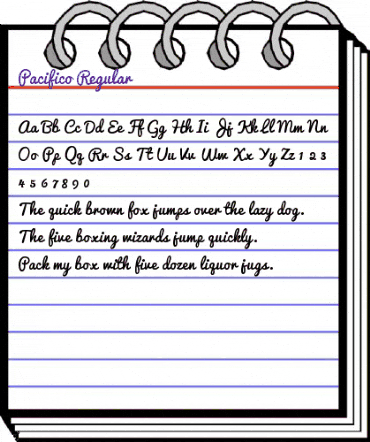 Pacifico Regular
Aa Bb Cc Dd Ee Ff Gg Hh Ii Jj Kk Ll Mm Nn
Oo Pp Qq Rr Ss Tt Uu Vv Ww Xx Yy Zz 1 2 3
4 5 6 7 8 9 0
The quick brown fox jumps over the lazy dog.
The five boxing wizards jump quickly.
Pack my box with five dozen liquor jugs.